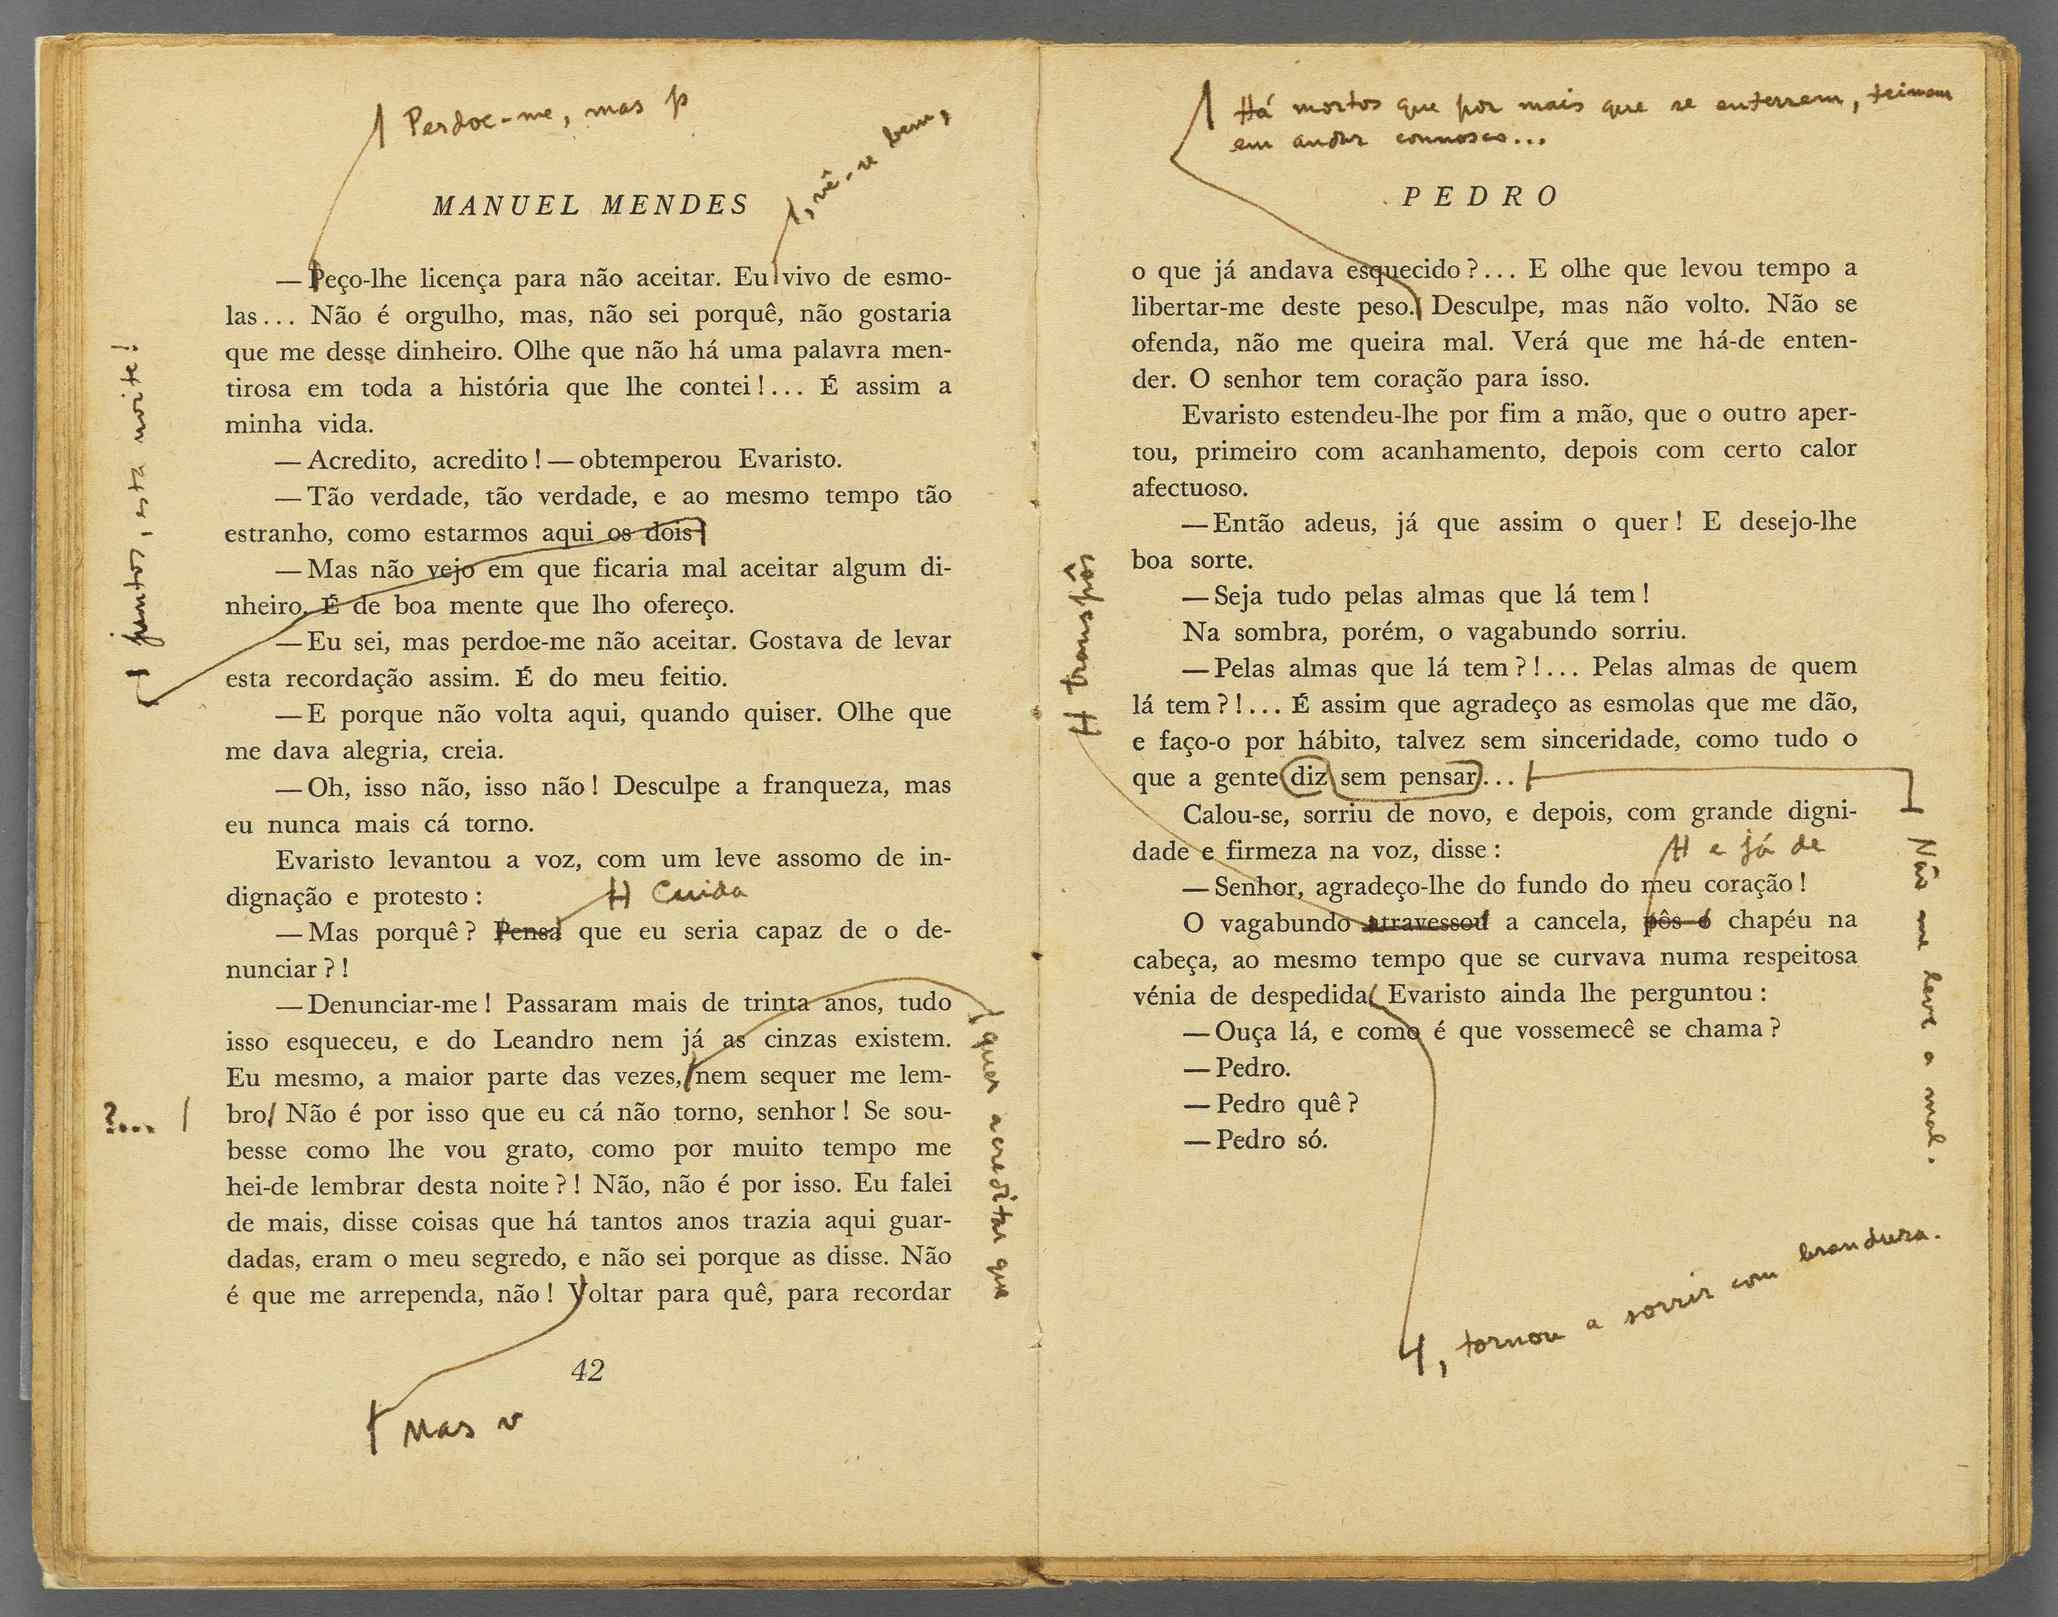 Perdoe-me, mas p
, vê-se bem,
MANUEL MENDES
— Peço-lhe licença para não aceitar. Eu vivo de esmo-
las... Não é orgulho, mas, não sei porquê, não gostaria
que me desse dinheiro. Olhe que não há uma palavra men-
tirosa em toda a história que lhe contei!... É assim a
minha vida.
— Acredito, acredito! — obtemperou Evaristo.
— Tão verdade, tão verdade, e ao mesmo tempo tão
estranho, como estarmos aqui os dois
juntos, esta noite!
— Mas não vejo em que ficaria mal aceitar algum di-
nheiro. É de boa mente que lho ofereço.
— Eu sei, mas perdoe-me não aceitar. Gostava de levar
esta recordação assim. É do meu feitio.
— E porque não volta aqui, quando quiser. Olhe que
me dava alegria, creia.
— Oh, isso não, isso não! Desculpe a franqueza, mas
eu nunca mais cá torno.
Evaristo levantou a voz, com um leve assomo de in-
dignação e protesto:
Cuida
— Mas porquê? Pensa que eu seria capaz de o de-
nunciar?!
— Denunciar-me! Passaram mais de trinta anos, tudo
isso esqueceu, e do Leandro nem já as cinzas existem.
Eu mesmo, a maior parte das vezes, nem sequer me lem-
quer acreditar que
bro Não é por isso que eu cá não torno, senhor! Se sou-
?...
besse como lhe vou grato, como por muito tempo me
hei-de lembrar desta noite?! Não, não é por isso. Eu falei
de mais, disse coisas que há tantos anos trazia aqui guar-
dadas, eram o meu segredo, e não sei porque as disse. Não
é que me arrependa, não! Voltar para quê, para recordar
42
Mas v
Há mortos que por mais que se enterrem, teimam
em andar connosco...
PEDRO
o que já andava esquecido?... E olhe que levou tempo a
libertar-me deste peso. Desculpe, mas não volto. Não se
ofenda, não me queira mal. Verá que me há-de enten-
der. O senhor tem coração para isso.
Evaristo estendeu-lhe por fim a mão, que o outro aper-
tou, primeiro com acanhamento, depois com certo calor
afectuoso.
— Então adeus, já que assim o quer! E desejo-lhe
boa sorte.
— Seja tudo pelas almas que lá tem!
Na sombra, porém, o vagabundo sorriu.
— Pelas almas que lá tem?!... Pelas almas de quem
lá tem?!... É assim que agradeço as esmolas que me dão,
e faço-o por hábito, talvez sem sinceridade, como tudo o
que a gente diz sem pensar...
Não me leve a mal.
Calou-se, sorriu de novo, e depois, com grande digni-
dade e firmeza na voz, disse:
e já de
— Senhor, agradeço-lhe do fundo do meu coração!
transpôs
O vagabundo atravessou a cancela, pôs o chapéu na
cabeça, ao mesmo tempo que se curvava numa respeitosa
vénia de despedida Evaristo ainda lhe perguntou:
— Ouça lá, e como é que vossemecê se chama?
— Pedro.
— Pedro quê?
— Pedro só.
, tornou a sorrir com brandura.